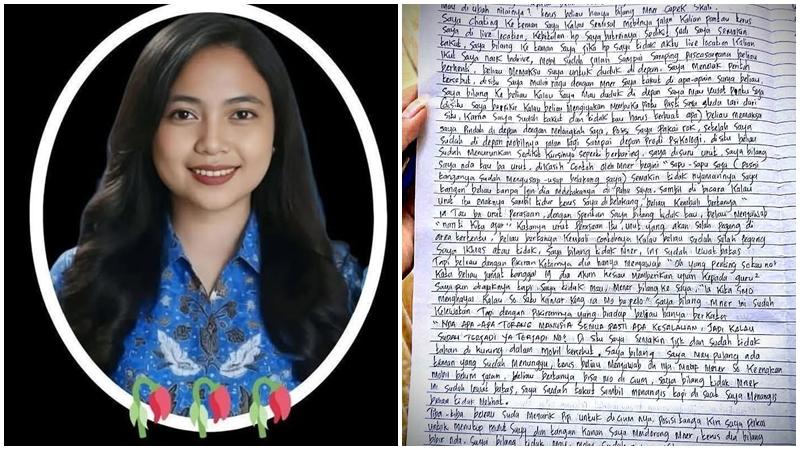 mau di ubah nilainya? terus beliau hanya bilang Mner Capek Skali.
Saya Chating ke teman saya Kalau Sentisol Mobilnya jalan kalian pantau terus
Saya di live location, Kebetulan hp saya batreinya sedikit jadi saya semakin
takut, Saya bilang ke teman saya jika hp saya tidak aktif live location kalian
ikut saya naik indrive, Mobil sudah jalan sampai samping Pascasarjana beliau
berhenti, beliau memaksa saya untuk duduk di depan. Saya menolak Perintah
tersebut, disitu saya mulai ragu dengan Mner saya takut di apa-apain Surya beliau,
Saya bilang ke beliau kalau saya mau duduk di depan saya mau lewat Pintu saja
(disitu saya berpikir kalau beliau mengiyakan membuka Pintu Pasti saya sudah lari dari
situ, Karna saya sudah takut dan tidak tau harus berbuat apa) beliau memaksa
saya Pindah di depan dengan melangkah saja, Posisi saya pakai rok, setelah saya
sudah di depan mobilnya jalan lagi sampai depan Prodi Psikologi. disitu beliau
sudah menurunkan sedikit kursinya seperti berbaring, saya disuru urut, saya bilang
saya nda tau ba urut, dikasih contoh oleh Mner begini "sapu-sapu saja (Posisi
tangannya sudah mengusap-usap belakang saya) semakin tidak nyamannya saya
tangan beliau tanpa ijin dia meletakannya di paha saya. Sambil di bicara kalau
urut itu enaknya sambil tidur terus saya dibelakang, beliau kembali bertanya
tau ba urut Perasaan, dengan spontan saya bilang tidak tau, beliau menjawab
"nanti kita ajar" katanya urut Perasaan itu, urut yang akan salah pegang di
area tertentu, beliau bertanya kembali contohnya kalau beliau sudah salah pegang
saya ikhlas atau tidak, saya bilang tidak Mner, ini sudah lewat batas
Tapi beliau dengan Pikiran kotornya dia hanya menjawab "oh yang penting so tau no"
kata beliau jumat tanggal dia akan keluar memberikan ujian kepada guru2
saya pun diajaknya tapi saya tidak mau, Mner bilang ke saya,
Kalau so satu kamar saya bilang Mner ini sudah
kelewatan Tapi dengan Pikirannya yang biadap beliau hanya berkata
"NDA APA-APA TORANG MANUSIA SEMUA PASTI ADA KESALAHAN, JADI KALAU
SUDAH TERJADI YA TERJADI NO" Di situ saya semakin jijik dan sudah tidak
tahan di kurung dalam mobil tersebut. Saya bilang, saya mau pulang ada
teman yang sudah menunggu, terus beliau menjawab
mobil belum jalan, beliau bertanya bisa mo di cium, saya bilang tidak Mner
ini sudah lewat batas, saya sudah takut sambil menangis tapi di saat saya menangis
beliau tidak melihat.
Tiba-tiba beliau suda menarik Pipi untuk di cium nya, posisi tangan kiri saya pakai
untuk menutup mulut saya dan tangan kanan saya mendorong Mner, terus dia bilang
bibir nda, saya bilang tidak mau,